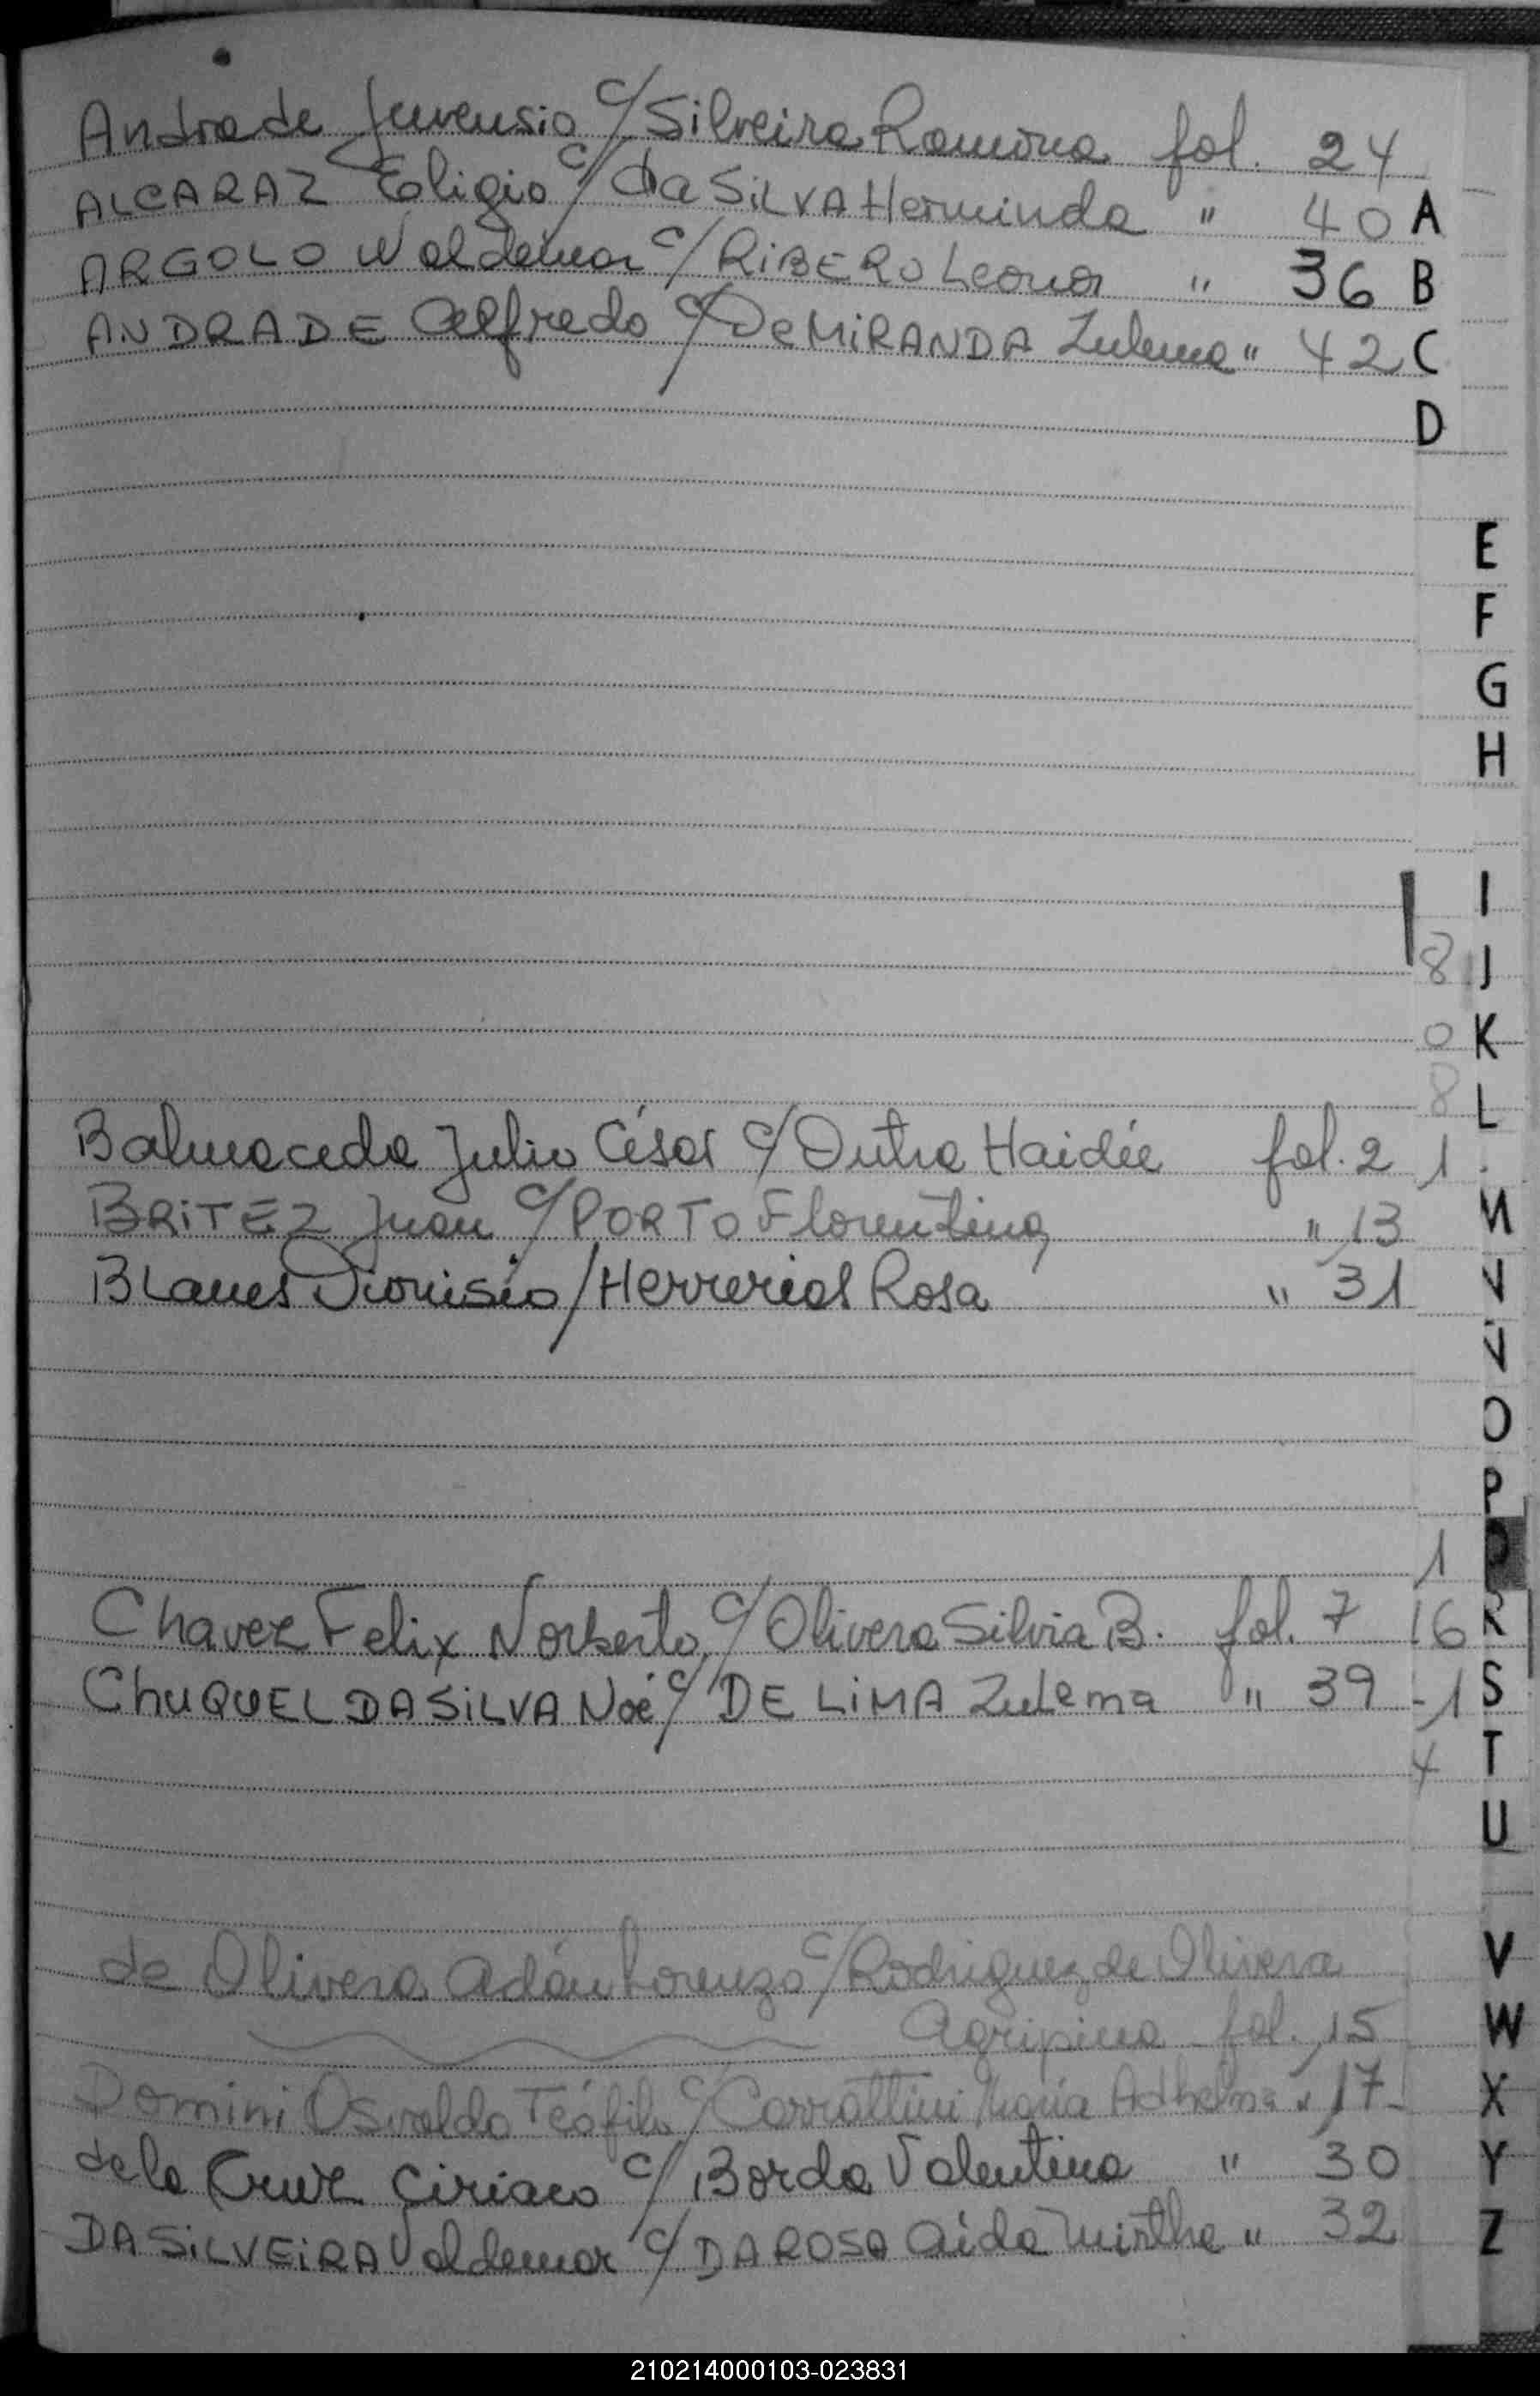 Andrade Juvensio c/ Silveira Ramona fol. 24
ALCARAZ Eligio c/ da SILVA Herminda " 40 A
ARGOLO Waldemar c/ RIBERO Leonor " 36 B
ANDRADE Alfredo c/ De MIRANDA Zulema " 42 C
D
E
F
G
H
I
8 J
0 K
8 L
Balmaceda Julio César c/ Dutra Haidée fol. 2 1
BRITEZ Juan c/ PORTO Florentina " 13 M
BLanes Dionisio / Herrerias Rosa " 31 N
N
O
P
1
Chavez Felix Norberto c/ Olivera Silvia B. fol. 7 16 R
ChUQUEL DA SILVA Noé c/ DE LIMA Zulema " 39 - 1 S
4 T
U
de Olivera Adán Lorenzo c/ Rodriguez de Olivera V
Agripina fol. 15 W
Domini Osvaldo Teófilo c/ Carrattini María Adhelma " 17 - X
de la Cruz Ciriaco c/ Borda Valentina " 30 Y
DA SILVEIRA Valdemar c/ DA ROSA Aida Mirtha " 32 Z
210214000103-023831